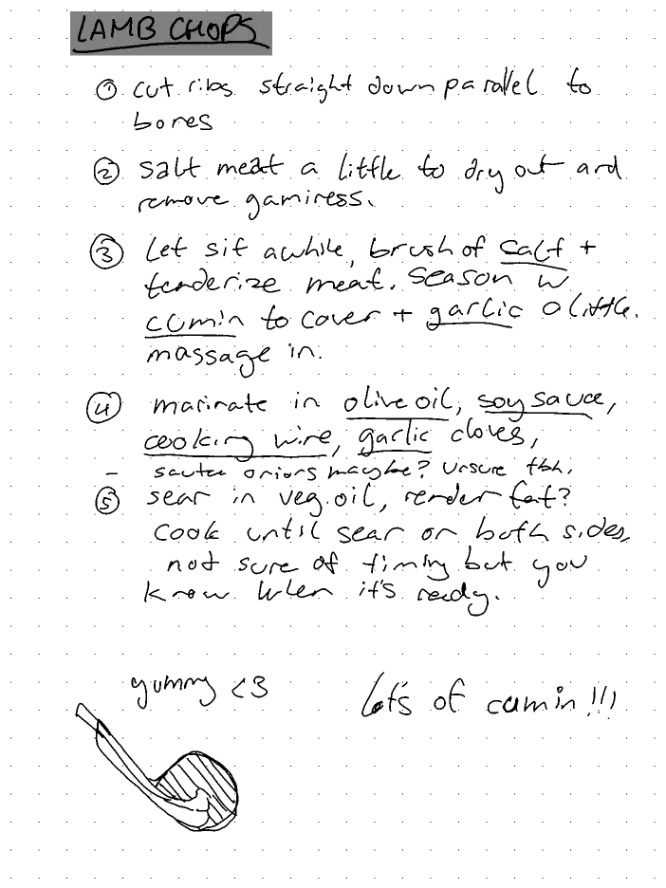 LAMB CHOPS
① cut ribs straight down parallel to
bones
② salt meat a little to dry out and
remove gaminess.
③ Let sit awhile, brush of salt +
tenderize meat. Season w
cumin to cover + garlic a little.
massage in.
④ marinate in olive oil, soy sauce,
cooking wine, garlic cloves,
- sautee onions maybe? Unsure tbh.
⑤ sear in veg. oil, render fat?
Cook until sear on both sides,
not sure of timing but you
know when it's ready.
yummy <3
lots of cumin !!!